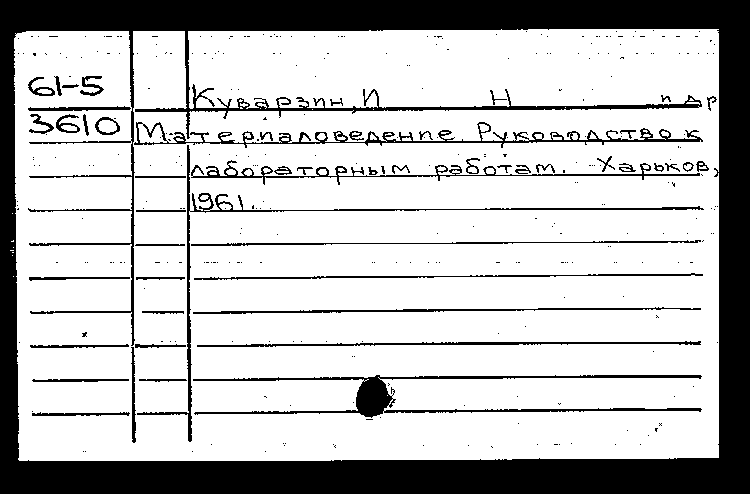 61-5 Куварзин, И Н и др
3610 Материаловедение Руководство к
лабораторным работам. Харьков,
1961.